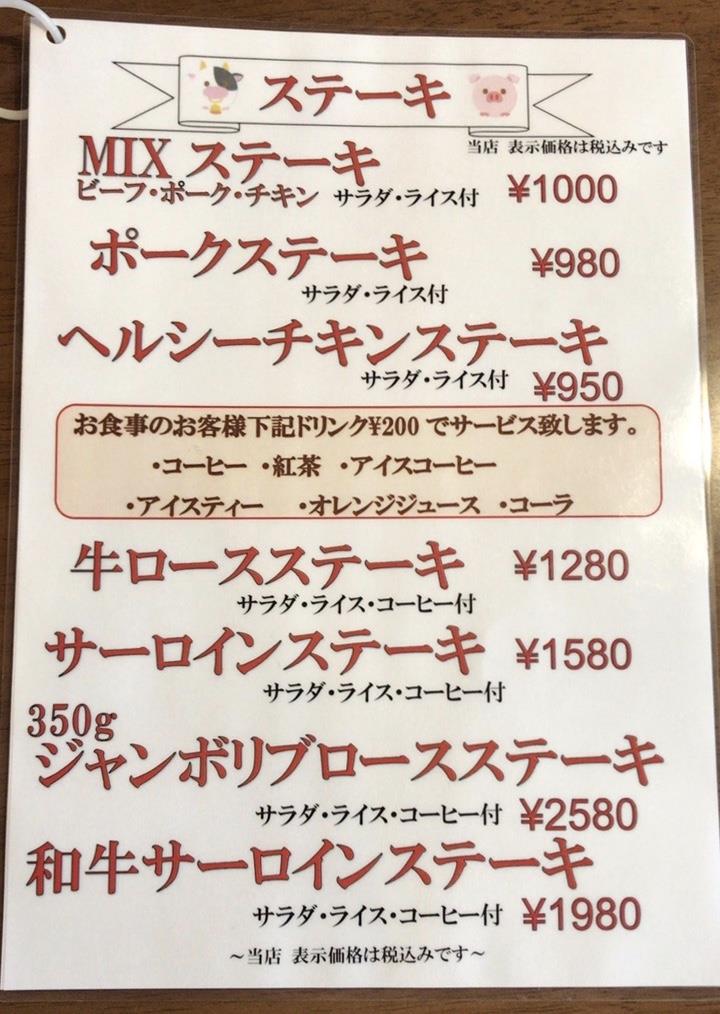 ステーキ
当店 表示価格は税込みです
MIX ステーキ
ビーフ・ポーク・チキン サラダ・ライス付 ¥1000
ポークステーキ ¥980
サラダ・ライス付
ヘルシーチキンステーキ
サラダ・ライス付 ¥950
お食事のお客様下記ドリンク¥200 でサービス致します。
・コーヒー ・紅茶 ・アイスコーヒー
・アイスティー ・オレンジジュース ・コーラ
牛ロースステーキ ¥1280
サラダ・ライス・コーヒー付
サーロインステーキ ¥1580
サラダ・ライス・コーヒー付
350g
ジャンボリブロースステーキ
サラダ・ライス・コーヒー付 ¥2580
和牛サーロインステーキ
サラダ・ライス・コーヒー付 ¥1980
～当店 表示価格は税込みです～